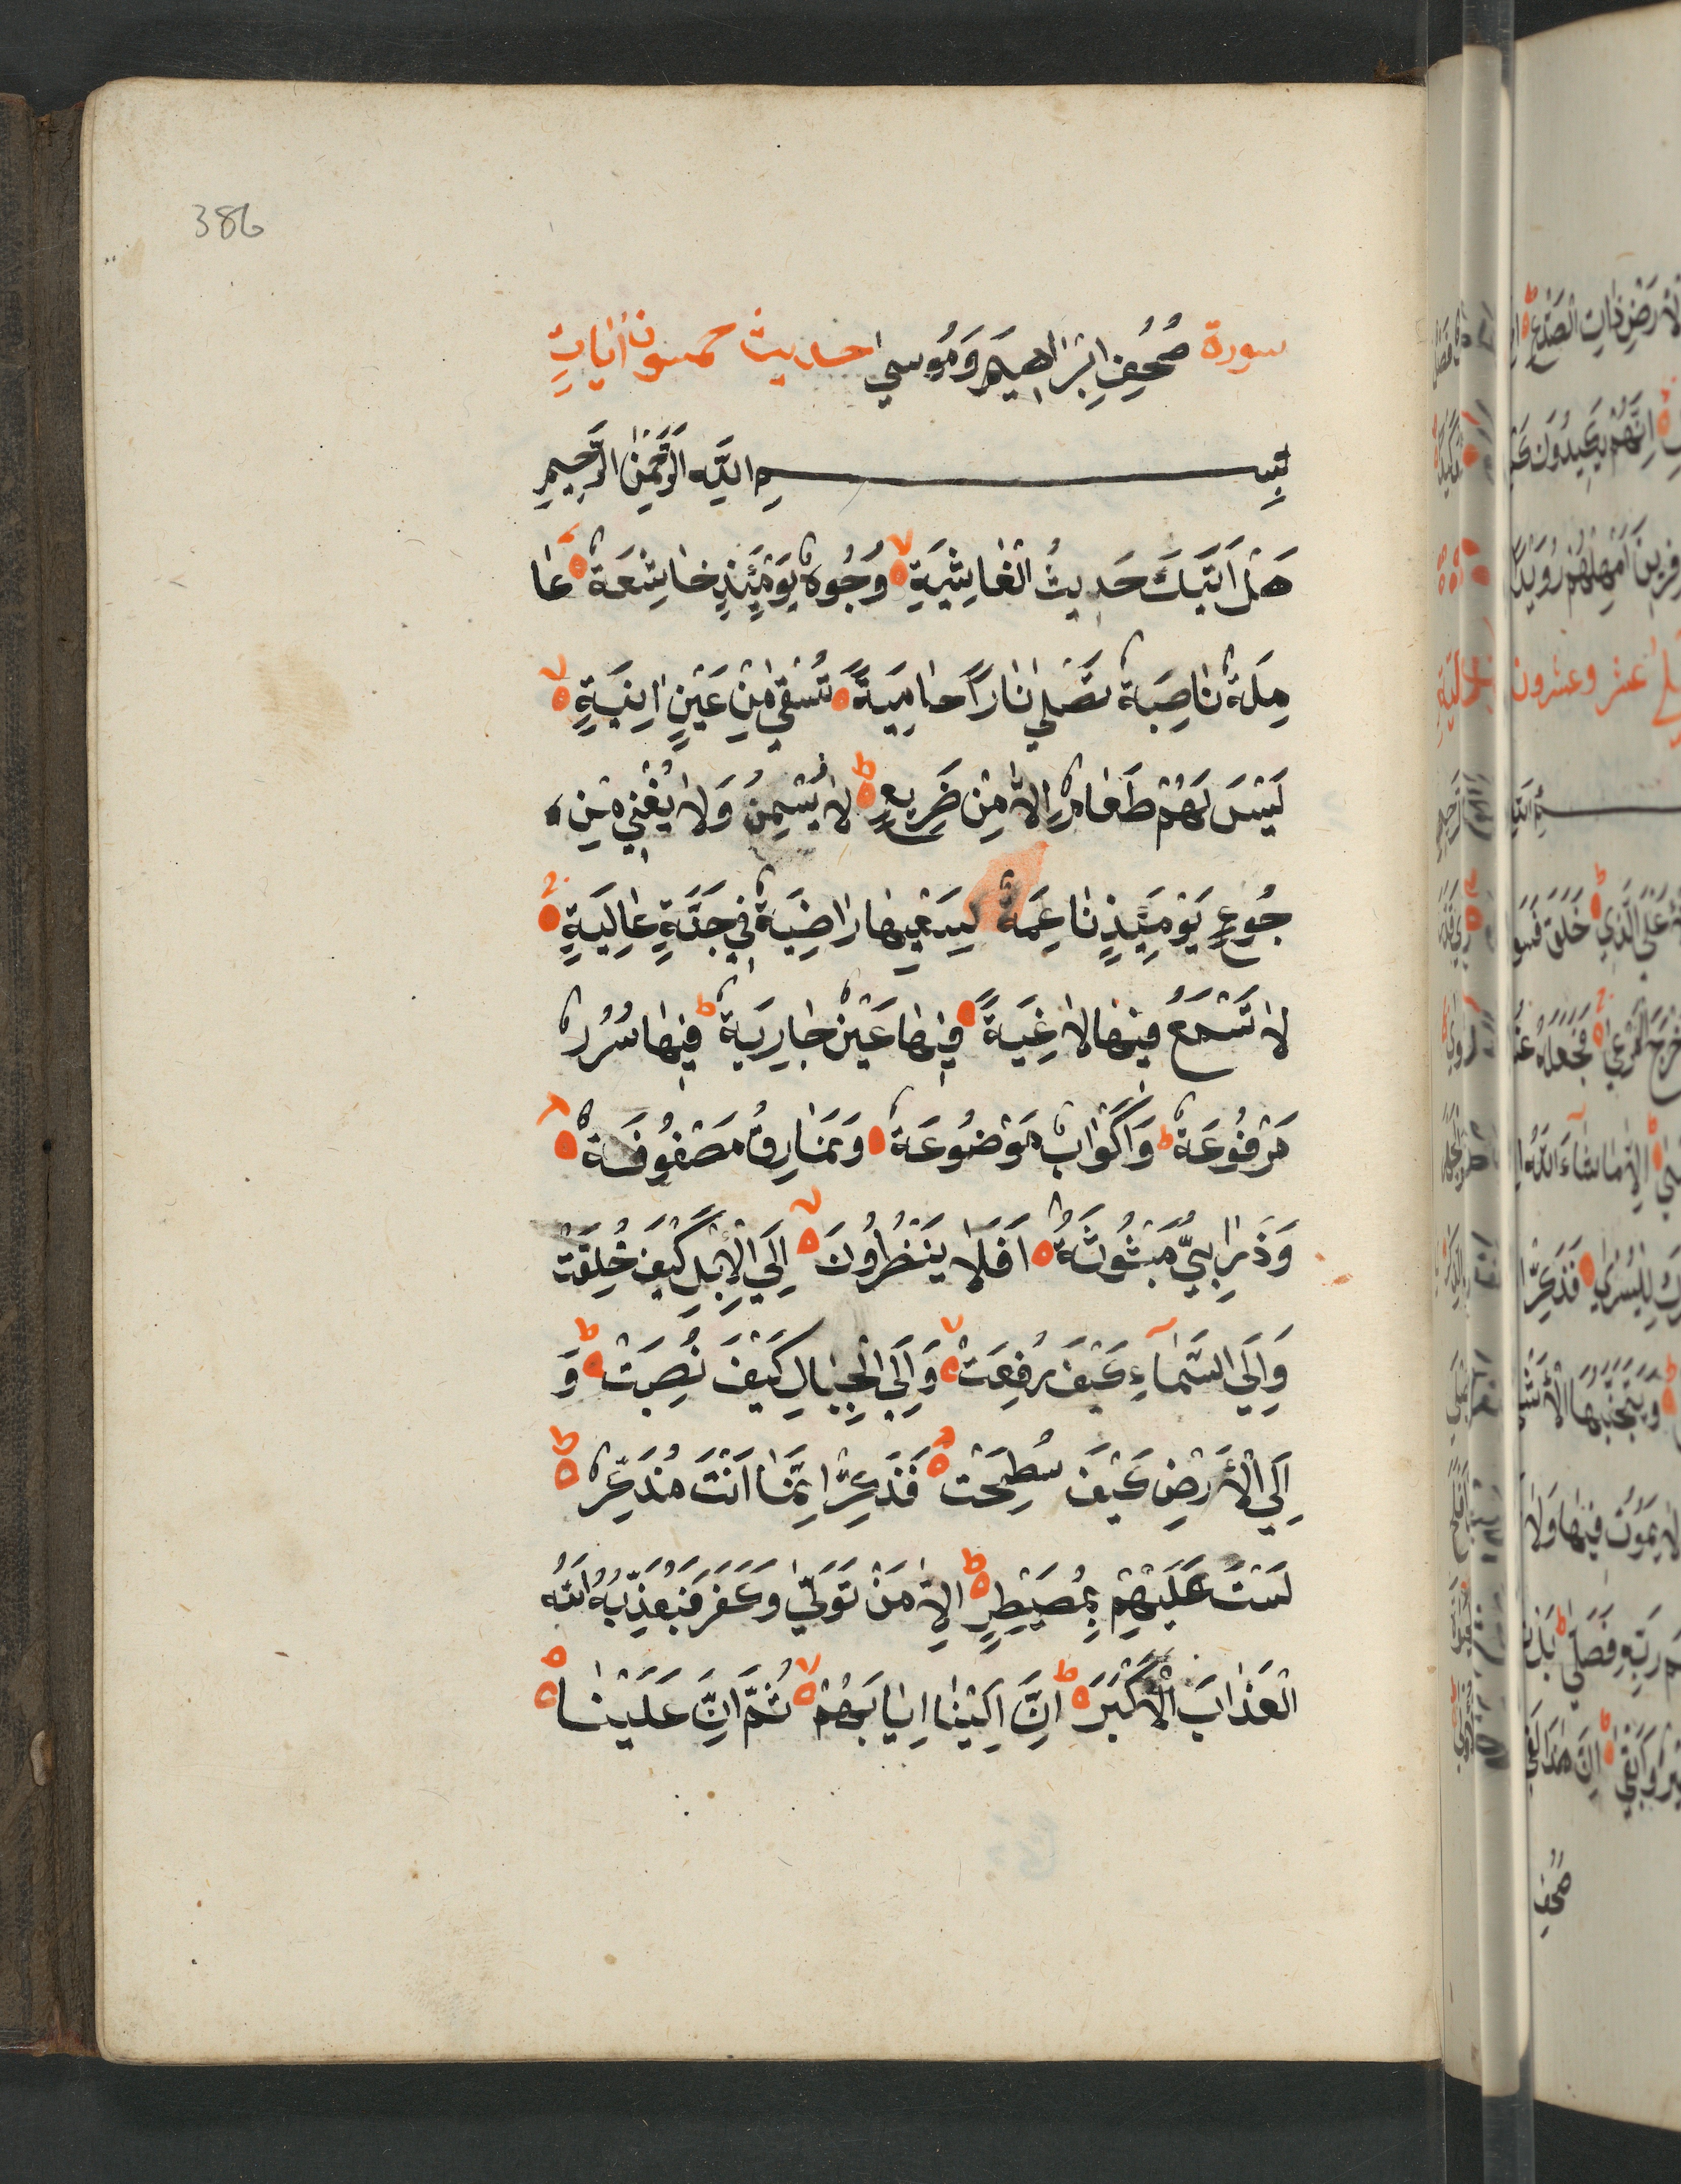 386
سورة صُحُفِ اِبْرَاهِيمَ وَمُوسٰي احديث خمسون اٰيَاتٍ
بِسْمِ اللّٰهِ الرَّحْمٰنِ الرَّحِيمِ
هَلْ اَتٰيكَ حَدِيثُ الْغَاشِيَةِ وُجُوهٌ يَوْمَئِذٍ خَاشِعَةٌ عَا
مِلَةٌ نَاصِبَةٌ تَصْلٰي نَارًا حَامِيَةً تُسْقٰي مِنْ عَيْنٍ اٰنِيَةٍ
لَيْسَ لَهُمْ طَعَامٌ اِلَّا مِنْ ضَرِيعٍ لَا يُسْمِنُ وَلَا يُغْنِي مِنْ
جُوعٍ يَوْمَئِذٍ نَاعِمَةٌ لِسَعْيِهَا رَاضِيَةٌ فِي جَنَّةٍ عَالِيَةٍ
لَا تَسْمَعُ فِيهَا لَاغِيَةً فِيهَا عَيْنٌ جَارِيَةٌ فِيهَا سُرُرٌ
مَرْفُوعَةٌ وَاَكْوَابٌ مَوْضُوعَةٌ وَنَمَارِقُ مَصْفُوفَةٌ
وَزَرَابِيُّ مَبْثُوثَةٌ اَفَلَا يَنْظُرُونَ اِلَي الْاِبِلِ كَيْفَ خُلِقَتْ
وَاِلَي السَّمَاءِ كَيْفَ رُفِعَتْ وَاِلَي الْجِبَالِ كَيْفَ نُصِبَتْ وَ
اِلَي الْاَرْضِ كَيْفَ سُطِحَتْ فَذَكِّرْ اِنَّمَا اَنْتَ مُذَكِّرٌ
لَسْتَ عَلَيْهِمْ بِمُصَيْطِرٍ اِلَّا مَنْ تَوَلّٰي وَكَفَرَ فَيُعَذِّبُهُ اللّٰهُ
الْعَذَابَ الْاَكْبَرَ اِنَّ اِلَيْنَا اِيَابَهُمْ ثُمَّ اِنَّ عَلَيْنَا